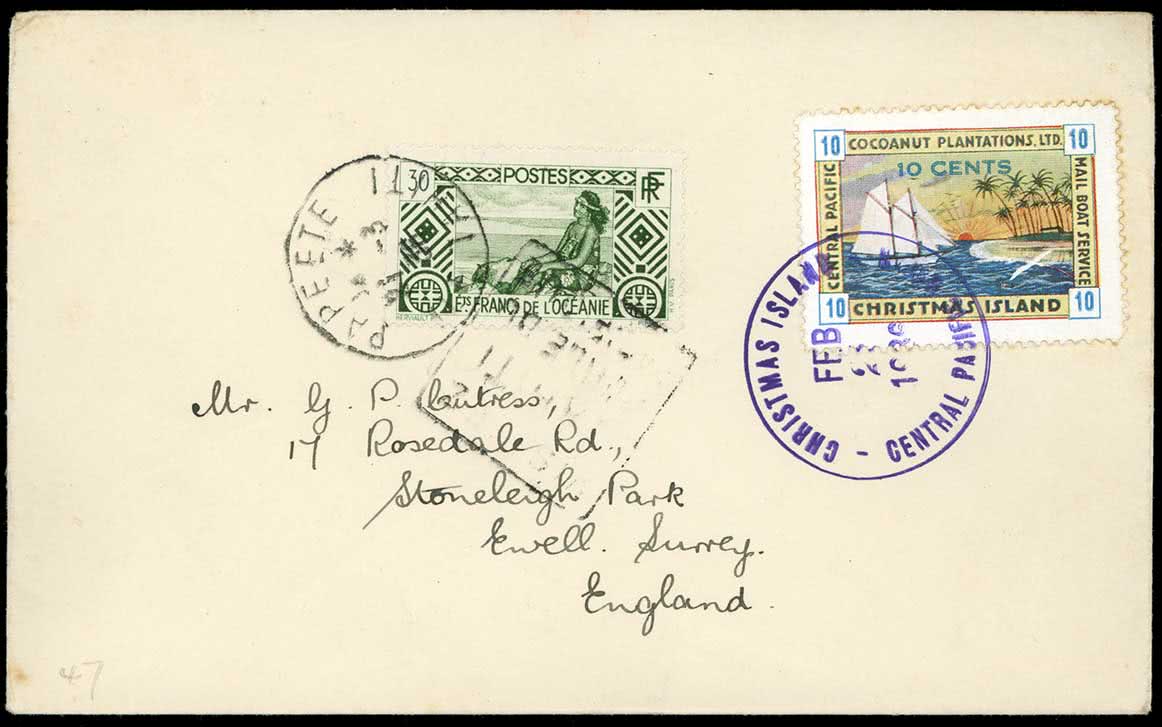 1f30 POSTES RF
ETS FRANCS DE L'OCÉANIE
PAPEETE
10 COCOANUT PLANTATIONS, LTD. 10
10 CENTS
CENTRAL PACIFIC
MAIL BOAT SERVICE
10 CHRISTMAS ISLAND 10
CHRISTMAS ISLAND - CENTRAL PACIFIC
FEB
23
Mr. G. P.
17 Rosedale Rd.,
Stoneleigh Park
Ewell. Surrey.
England.
47